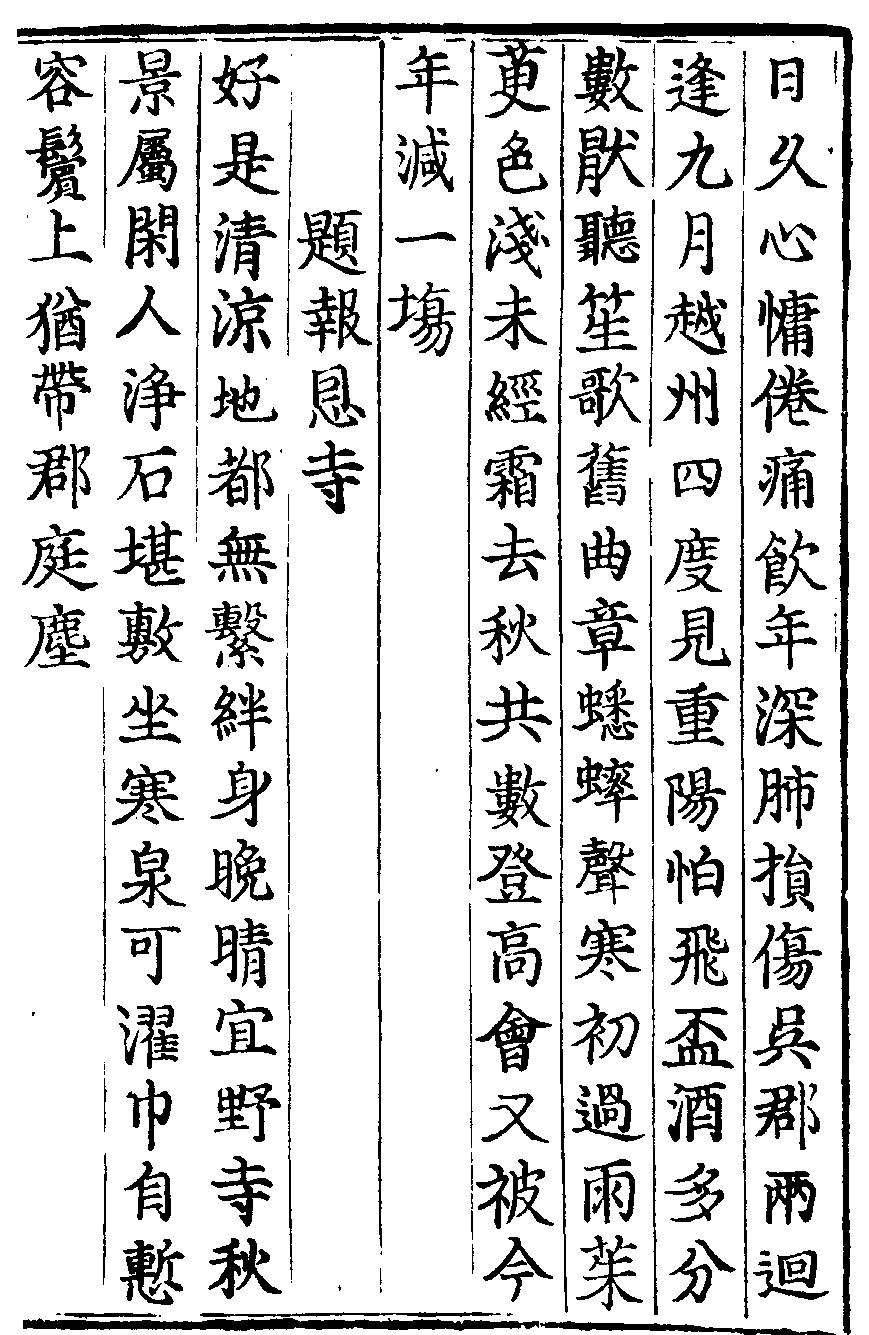 日久心慵倦痛飲年深肺損傷吳郡兩迴
逢九月越州四度見重陽怕飛盃酒多分
數猒聽笙歌舊曲章蟋蟀聲寒初過雨茱
萸色淺未經霜去秋共數登高會又被今
年減一塲
題報恩寺
好是清涼地都無繫絆身晚晴宜野寺秋
景屬閑人淨石堪敷坐寒泉可濯巾自慙
容鬢上猶帶郡庭塵